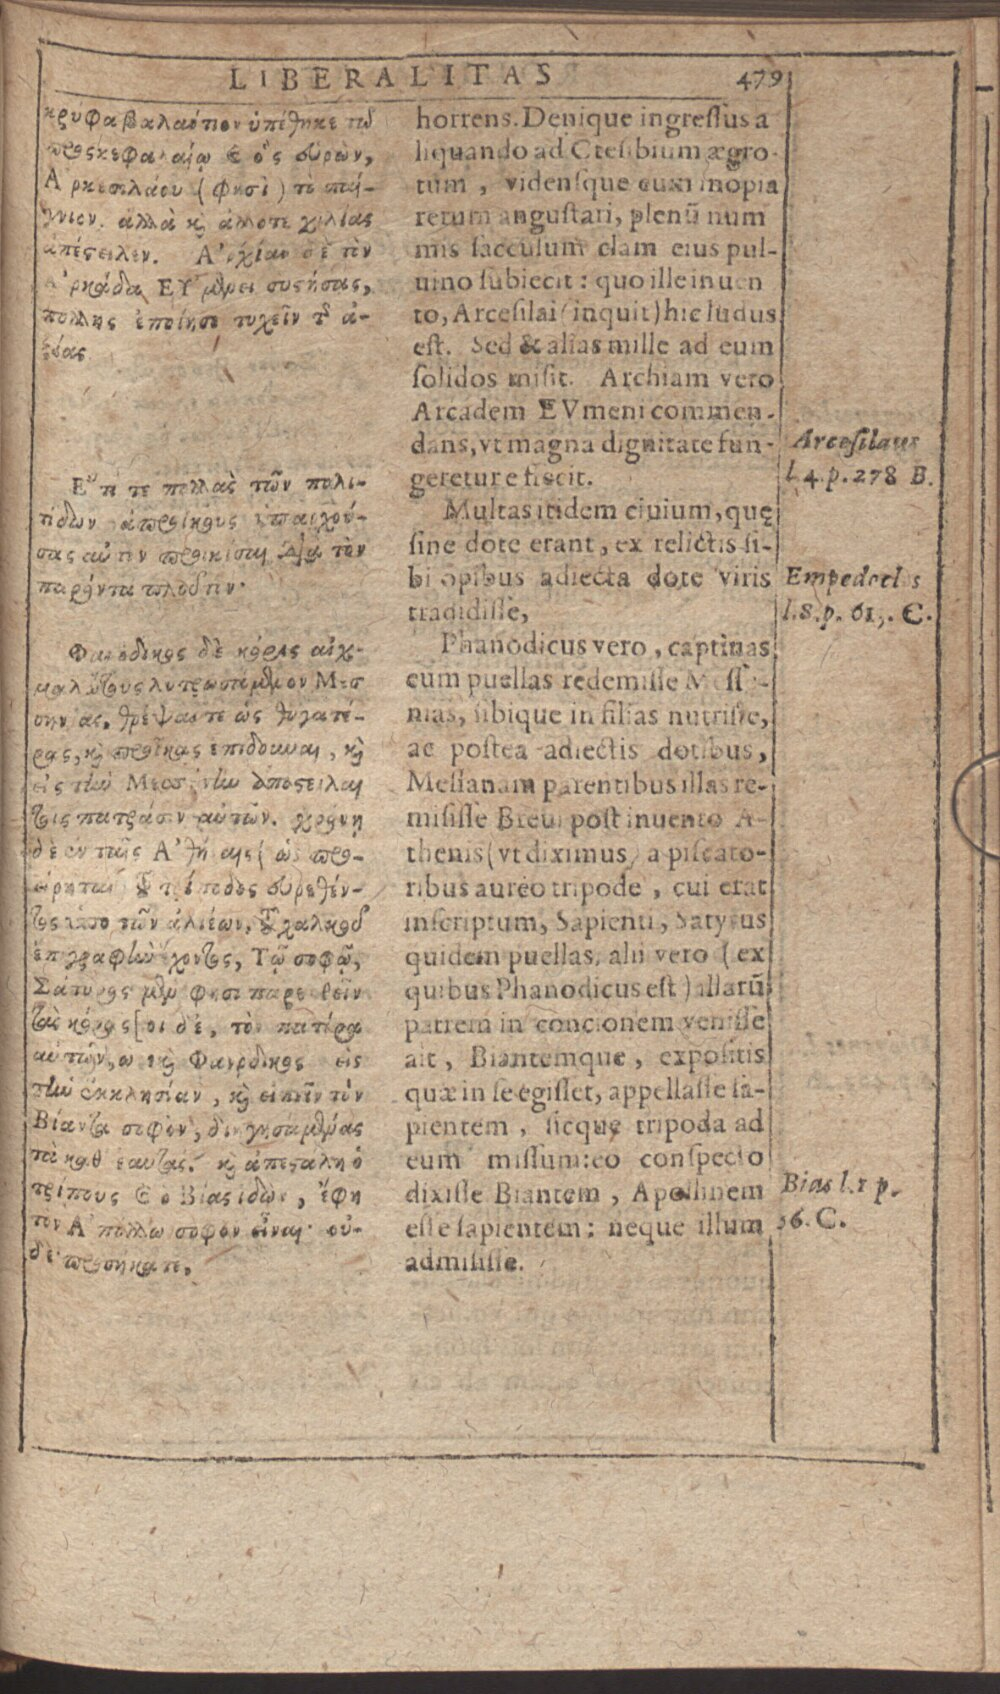 LIBERALITAS 479
κρύφα βαλάντιον ὑπέθηκε τῷ
προσκεφαλαίῳ ὃς εὑρὼν,
Ἀρκεσιλάου (φησὶ) τὸ παί-
γνιον. ἀλλὰ κỳ ἄλλοτε χιλίας
ἀπέστειλεν. Ἀρχίαν δὲ τὸν
Ἀρκάδα ΕΥμένει συστήσας,
πολλῆς ἐποίησε τυχεῖν τῆς ἀ-
ξίας
Ἔτι τε πολλὰς τῶν πολι-
τίδων ἀπροίκους ὑπαρχού-
σας αὐτὸν προικίσαι διὰ τὸν
παρόντα πλοῦτον.
Φανόδικος δὲ κόρας αἰχ-
μαλώτους λυτρωσάμενον Μεσ
σηνίας, θρέψαι τε ὡς θυγατέ-
ρας, κỳ προῖκας ἐπιδοῦναι, κỳ
εἰς τὴν Μεσσήνην ἀποστεῖλαι
τοῖς πατράσιν αὐτῶν. χρόνῳ
δὲ ἐν ταῖς Ἀθήναις (ὡς προ-
είρηται) τοῦ τρίποδος εὑρεθέν-
τος ὑπὸ τῶν ἁλιέων, τοῦ χαλκοῦ
ἐπιγραφὴν ἔχοντος, Τῷ σοφῷ,
Σάτυρος μὲν φησι παρελθεῖν
τὰς κόρας [οἱ δὲ, τὸν πατέρα
αὐτῶν, ὡς κỳ Φανόδικος εἰς
τὴν ἐκκλησίαν, κỳ εἰπεῖν τὸν
Βίαντα σοφὸν, διηγησαμένας
τὰ καθ᾽ ἑαυτάς. κỳ ἀπεστάλη ὁ
τρίπους ὁ Βίας ἰδὼν, ἔφη
τὸν Ἀπόλλω σοφὸν εἶναι· οὐ-
δὲ προσήκατο,
horrens. Denique ingressus a
liquando ad Ctesibium ægro-
tum, vidensque eum inopia
rerum angustari, plenũ num
mis sacculum clam eius pul-
uino subiecit: quo ille inuen
to, Arcesilai (inquit) hic ludus
est. Sed & alias mille ad eum
solidos misit. Archiam vero
Arcadem EVmeni commen-
dans, vt magna dignitate fun-
geretur effecit.
Multas itidem ciuium, quę
sine dote erant, ex relictis si-
bi opibus adiecta dote viris
tradidisse,
Phanodicus vero, captiuas
eum puellas redemisse Messe-
nias, sibique in filias nutrisse,
ac postea adiectis dotibus,
Messanam parentibus illas re-
misisse Breui post inuento A-
thenis (vt diximus) a piscato-
ribus aureo tripode, cui erat
inscriptum, Sapienti, Satyrus
quidem puellas, alii vero (ex
quibus Phanodicus est) illarũ
patrem in concionem venisse
ait, Biantemque, expositis
quæ in se egisset, appellasse sa-
pientem, sicque tripoda ad
eum missum: eo conspecto
dixisse Biantem, Apollinem
esse sapientem: neque illum
admisisse.
Arcesilaus
l.4.p.278 B.
Empedocles
l.8.p. C.
Bias l.1 p.
56. C.